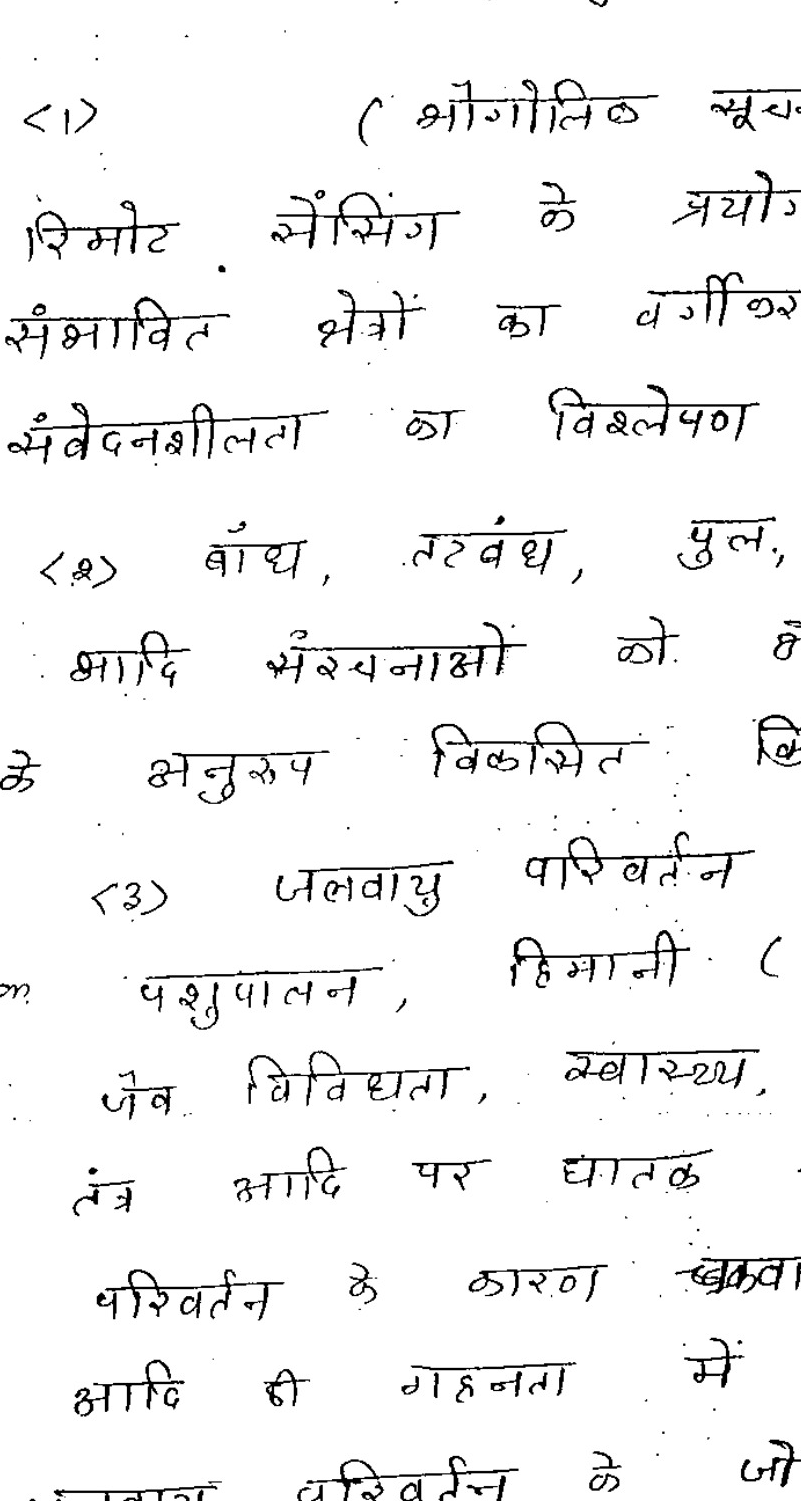 <1> ( भौगोलिक सूच
रिमोट सेंसिंग के प्रयोग
संभावित क्षेत्रों का वर्गीकर
संवेदनशीलता का विश्लेषण
<२> बाँध, तटबंध, पुल,
आदि संरचनाओं को
के अनुरूप विकसित कि
<३> जलवायु परिवर्तन
पशुपालन, हिमानी (
जैव विविधता, स्वास्थ्य,
तंत्र आदि पर घातक
परिवर्तन के कारण चक्रवा
आदि की गहनता में
परिवर्तन के जो